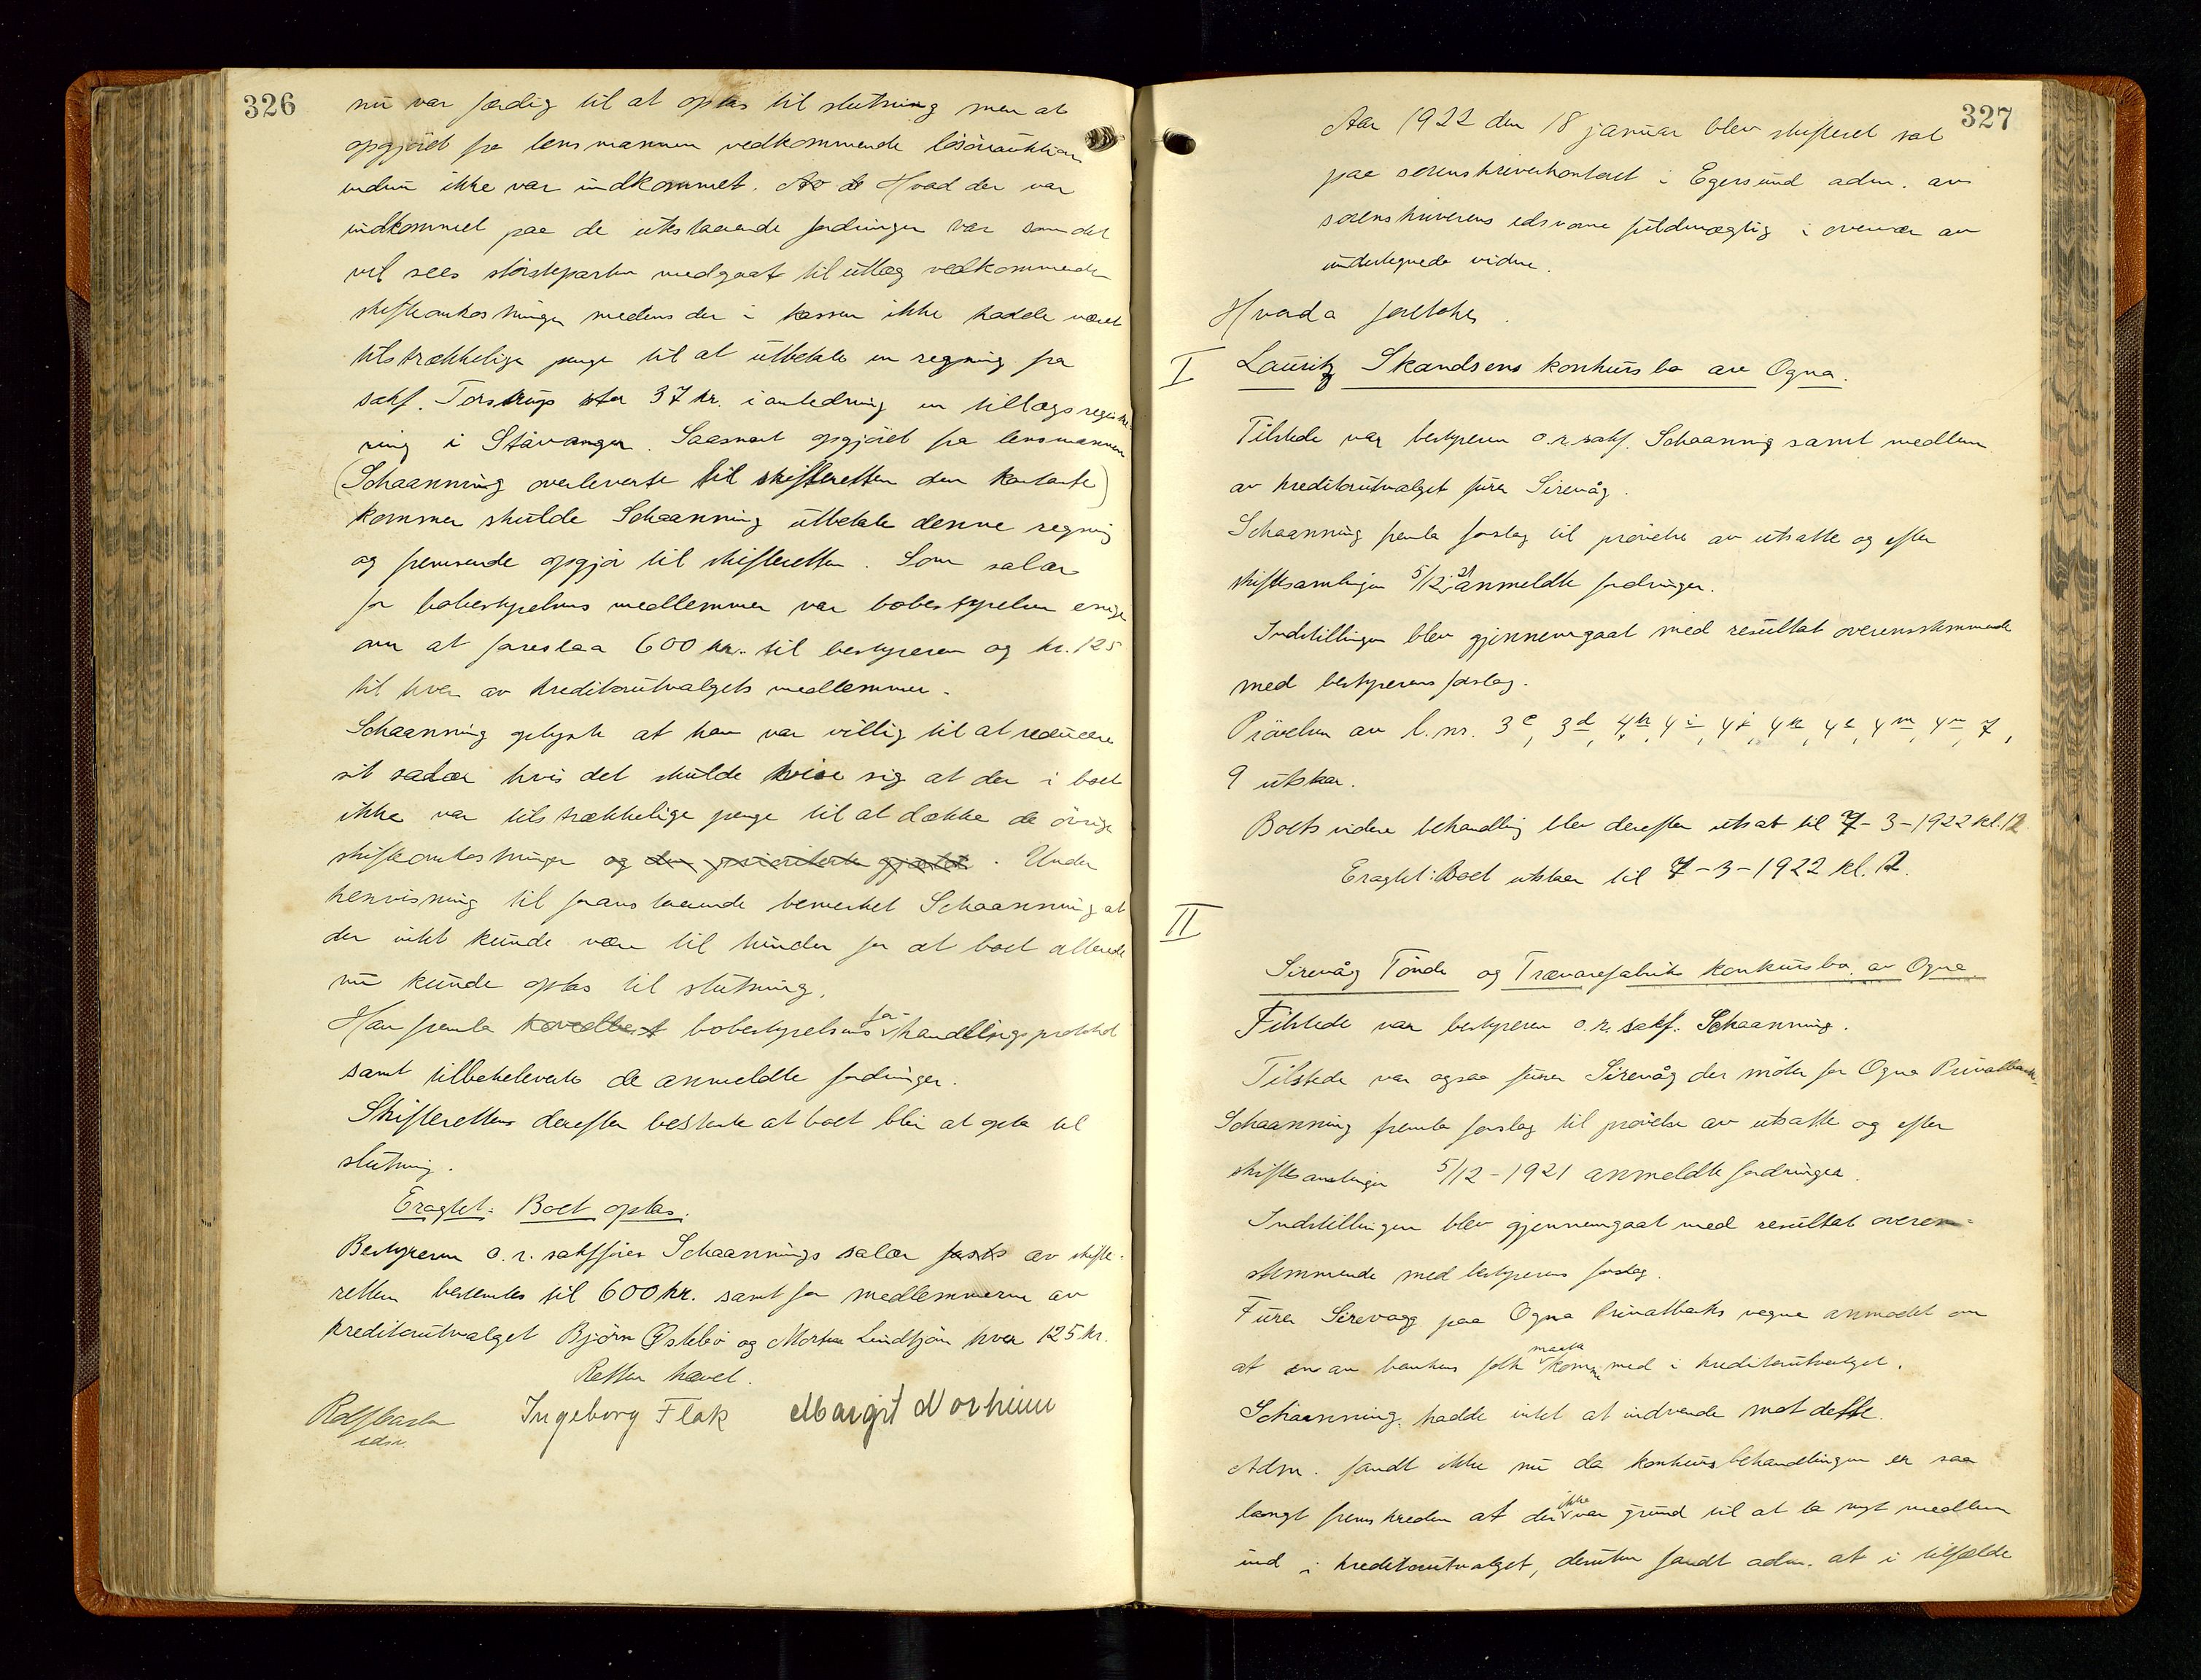 326
nu var færdig til at optas til slutning men at
opgjöret fra lensmannen vedkommende lösöreauktion
endnu ikke var indkommet. Av de Hvad der var
indkommet paa de utestaaende fordringer var som det
vil sees størsteparten medgaat til utlæg vedkommende
skifteomkostninger medens der i kassen ikke hadde været
tilstrækkelige penge til at utbetale en regning fra
sakf. Torstrup stor 37 kr. i anledning en tillægsregistre-
ring i Stavanger. Saasnart opgjöret fra lensmannen
(Schaanning overleverte til skifteretten den kontante)
kommer skulde Schaanning utbetale denne regning
og fremsende opgjör til skifteretten. Som salær
for bobestyrelsens medlemmer var bobestyrelsen enige
om at foreslaa 600 kr. til bestyreren og kr. 125
til hver av kreditorutvalgets medlemmer.
Schaanning oplyste at han var villig til at reducere
sit salær hvis det skulde vise sig at der i boet
ikke var tilstrækkelige penge til at dække de övrige
skifteomkostninger og den prioriterte gjæld. Under
henvisning til foranstaaende bemerket Schaanning at
der intet kunde være til hinder for at boet allerede
nu kunde optas til slutning.
Han fremla bobestyrelsens for- handlingsprotokol
samt tilbakeleverte de anmeldte fordringer.
Skifteretten derefter bestemte at boet blir at opta til
slutning.
Eragtet: Boet optas.
Bestyreren o.r. sakförer Schaannings salær av skifte-
retten bestemtes til 600 kr. samt for medlemmerne av
kreditorutvalget Björn Østebö og Morten Lindtjörn hver 125 kr.
Retten hævet.
edsv. Ingeborg Flak Margit Norheim
327
Aar 1922 den 18 januar blev skifteret sat
paa sorenskriverkontoret i Egersund adm. av
sorenskriverens edsvorne fuldmægtig i overvær av
undertegnede vidne.
Hvorda foretokes.
I Lauritz Skandsens konkursbo av Ogna.
Tilstede var bestyreren o.r. sakf. Schaanning samt medlem
av kreditorutvalget Furer Sirevåg.
Schaanning fremla forslag til prövelse av utsatte og efter
skiftesamlingen 5/12-21 anmeldte fordringer.
Indstillingen blev gjennemgaat med resultat overensstemmende
med bestyrerens forslag.
Prövelsen av l.nr. 3c, 3d, 4h, 4i, 4j, 4k, 4l, 4m, 4n, 7,
9 utstaar.
Boets videre behandling blev derefter utsat til 7-3-1922 kl. 12.
Eragtet: Boet utstaar til 7-3-1922 kl. 12.
II
Sirevåg Tönde og Trævarefabriks konkursbo av Ogna
Tilstede var bestyreren o.r. sakf. Schaanning.
Tilstede var ogsaa Furer Sirevåg der möter for Ogna Privatbank.
Schaanning fremla forslag til prövelse av utsatte og efter
skiftesamlingen 5/12-1921 anmeldte fordringer.
Indstillingen blev gjennemgaat med resultat overens-
stemmende med bestyrerens forslag.
Furer Sirevaag paa Ogna Privatbanks vegne anmodet om
at en av bankens folk maatte komme med i kreditorutvalget.
Schaanning hadde intet at indvende mot dette.
Adm. fandt ikke nu da konkursbehandlingen er saa
langt fremskreden at der ikke var grund til at ta nyt medlem
ind i kreditorutvalget, desuten fandt adm. at i tilfælde